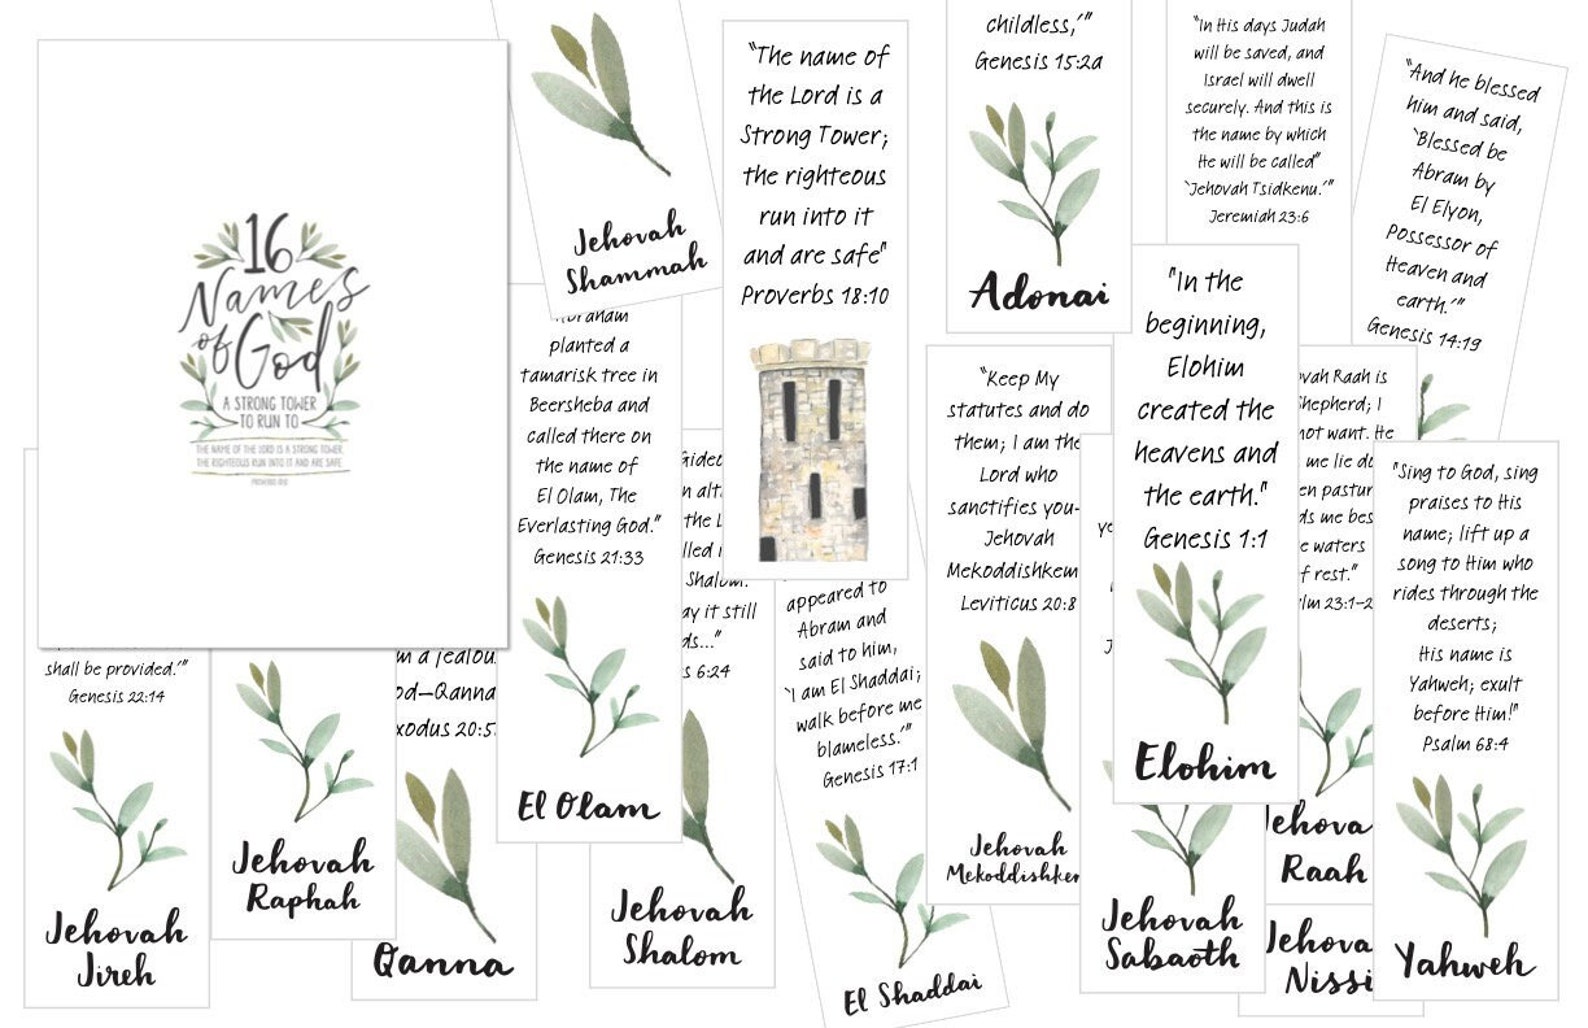 16
Names
of God
A STRONG TOWER
TO RUN TO
THE NAME OF THE LORD IS A STRONG TOWER,
THE RIGHTEOUS RUN INTO IT AND ARE SAFE
PROVERBS 18:10
Jehovah
Shammah
"The name of
the Lord is a
Strong Tower;
the righteous
run into it
and are safe"
Proverbs 18:10
childless,'"
Genesis 15:2a
Adonai
"In His days Judah
will be saved, and
Israel will dwell
securely. And this is
the name by which
He will be called"
'Jehovah Tsidkenu.'"
Jeremiah 23:6
"And he blessed
him and said,
'Blessed be
Abram by
El Elyon,
Possessor of
Heaven and
earth.'"
Genesis 14:19
planted a
tamarisk tree in
Beersheba and
called there on
the name of
El Olam, The
Everlasting God."
Genesis 21:33
El Olam
"Keep My
statutes and do
them; I am the
Lord who
sanctifies you-
Jehovah
Mekoddishkem
Leviticus 20:8
Jehovah
Mekoddishkem
"In the
beginning,
Elohim
created the
heavens and
the earth."
Genesis 1:1
Elohim
vah Raah is
hepherd; I
not want. He
me lie do
en pastur
ds me bes
e waters
f rest."
lm 23:1-2
Jehova
Raah
"Sing to God, sing
praises to His
name; lift up a
song to Him who
rides through the
deserts;
His name is
Yahweh; exult
before Him!"
Psalm 68:4
Yahweh
shall be provided.'"
Genesis 22:14
Jehovah
Jireh
Jehovah
Raphah
m a jealou
od—Qanna
xodus 20:5
Qanna
Gideo
n alt
the L
lled i
Shalom.
ay it still
ds..."
s 6:24
Jehovah
Shalom
appeared to
Abram and
said to him,
'I am El Shaddai;
walk before me
blameless.'"
Genesis 17:1
El Shaddai
ye
J
Jehovah
Sabaoth
Jehova
Nissi